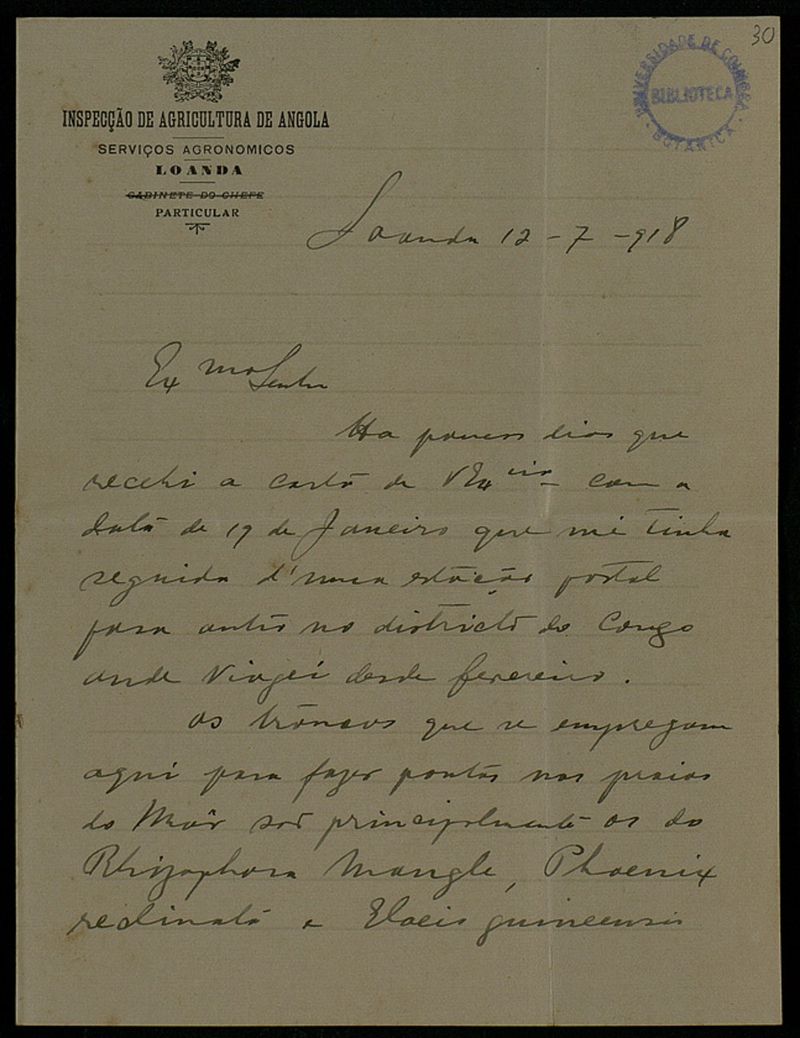 30
UNIVERSIDADE DE COIMBRA
BIBLIOTECA
BOTANICA
INSPECÇÃO DE AGRICULTURA DE ANGOLA
SERVIÇOS AGRONOMICOS
LOANDA
GABINETE DO CHEFE
PARTICULAR
Loanda 12-7-918
Exmo Senhor
Ha poucos dias que
recebi a carta de VExcia com a
data de 19 de Janeiro que me tinha
seguida d'uma estação postal
para outra no districto do Congo
onde viagei desde fevereiro.
Os troncos que se empregam
aqui para fazer pontas nas praias
do Mar são principalmente os do
Rhizophora Mangle, Phoenix
reclinata e Elaeis guineensis